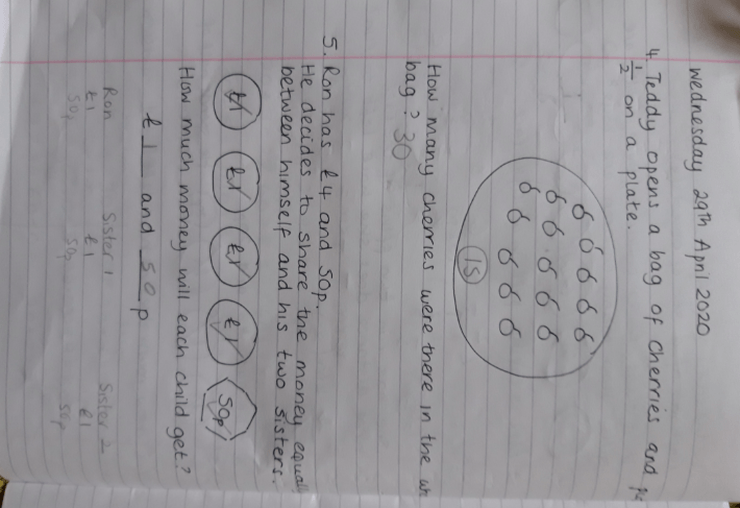 Wednesday 29th April 2020
4. Teddy opens a bag of cherries and
1/2 on a plate.
15
How many cherries were there in the
bag? 30
5. Ron has £4 and 50p.
He decides to share the money
between himself and his two sisters.
£1 £1 £1 £1 50p
How much money will each child get?
£ 1 and 50 p
Ron Sister 1 Sister 2
£1 £1 £1
50p 50p 50p